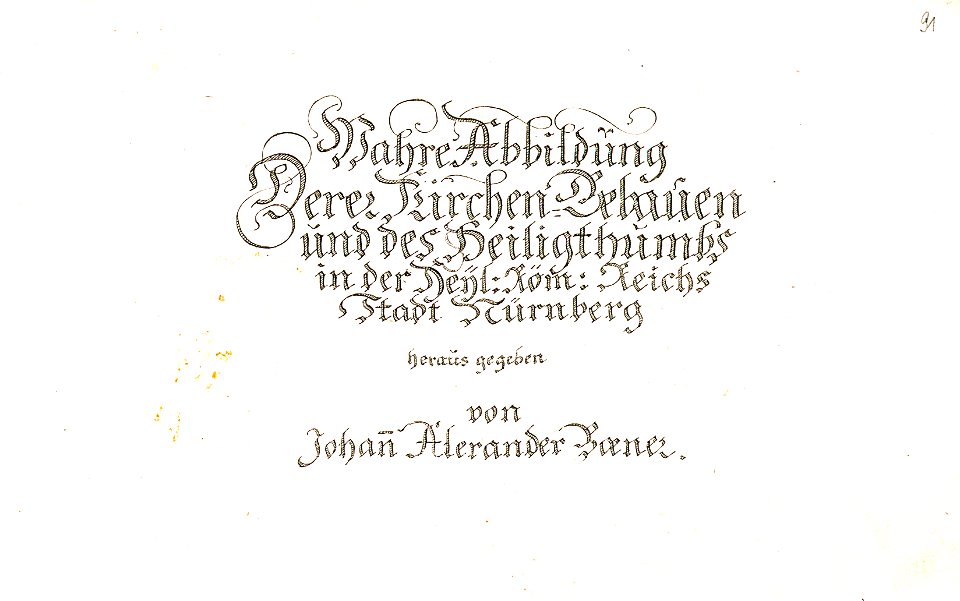 91
Wahre Abbildüng
Derer Kirchen-Gebaüen
ünd des Heiligthümbs
in der Heyl: Röm: Reichs
Stadt Nürnberg
heraüs gegeben
von
Johan̄ Alexander Bœner.